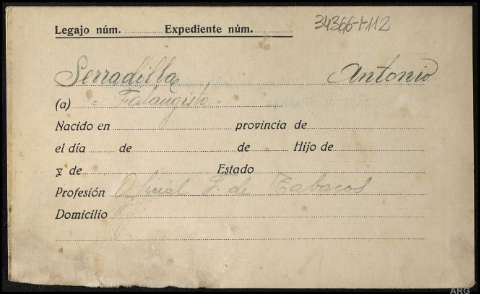 Legajo núm. Expediente núm. 34366-112
Serradilla Antonio
(a) - Falangista -
Nacido en provincia de
el día de de Hijo de
y de Estado
Profesión Oficial F. de Tabacos
Domicilio
ARG